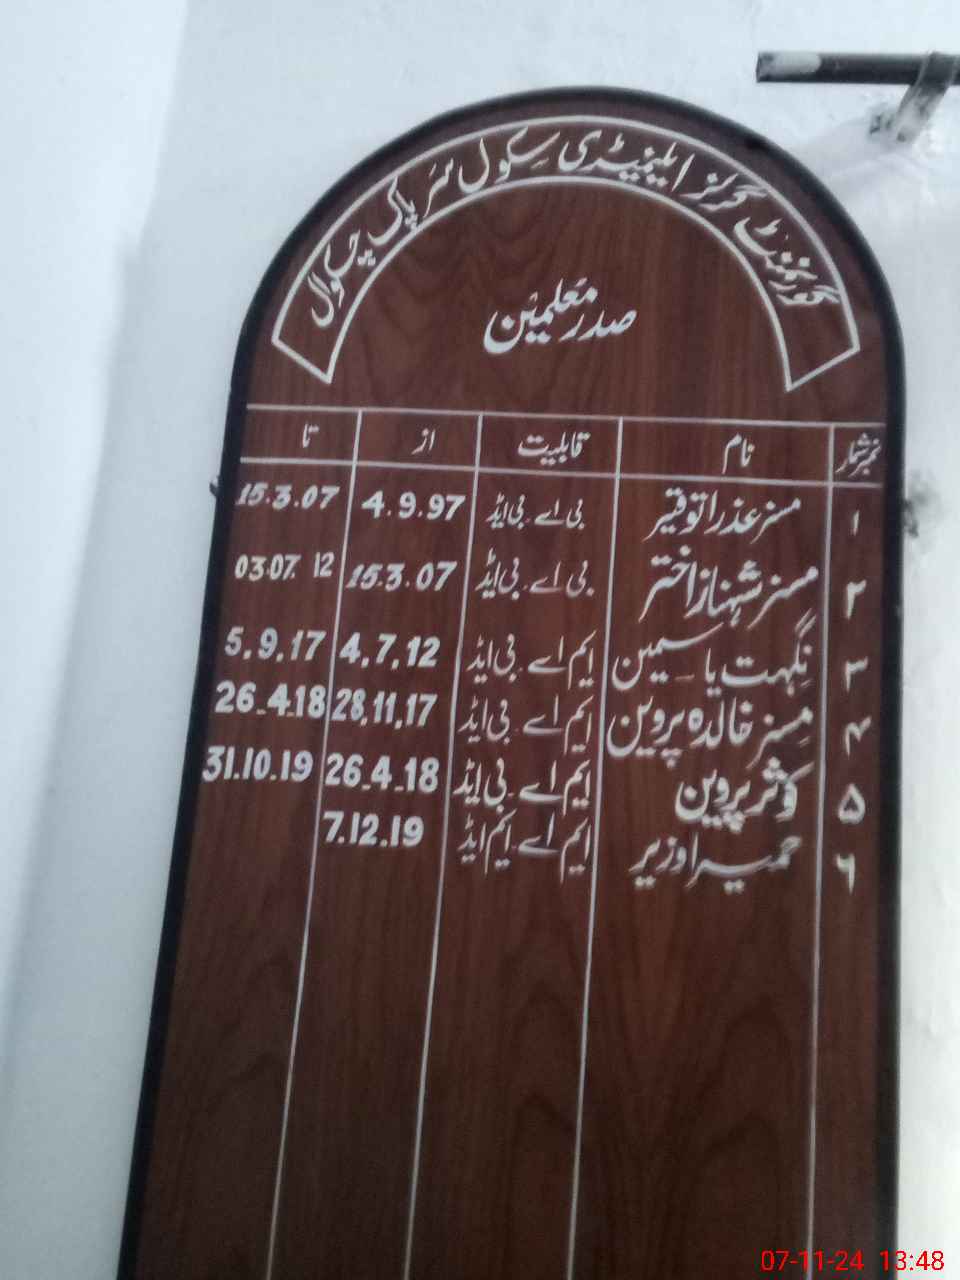 گورنمنٹ گرلز ایلیمنٹری سکول سرپاک چکوال
صدر معلمین
نمبر شمار نام قابلیت از تا
۱ مسز عذرا توقیر بی اے بی ایڈ 4.9.97 15.3.07
۲ مسز شہناز اختر بی اے بی ایڈ 15.3.07 03.07. 12
۳ نگہت یاسمین ایم اے بی ایڈ 4.7.12 5.9.17
۴ مسز خالدہ پروین ایم اے بی ایڈ 28.11.17 26.4.18
۵ کوثر پروین ایم اے بی ایڈ 26.4.18 31.10.19
۶ حمیرا وزیر ایم اے ایم ایڈ 7.12.19
07-11-24 13:48